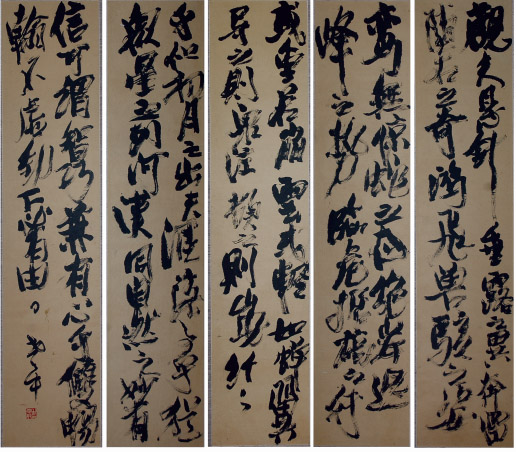 觀夫懸針垂露之異奔雷
墜石之奇鴻飛獸駭之姿
鸞舞驚蛇之態絕岸頹
峰之勢臨危據槁之形
或重若崩雲或輕如蟬翼
導之則泉注頓之則山安纖纖
乎似初月之出天涯落落乎猶
眾星之列河漢同自然之妙有
信可謂智巧兼有心手雙暢
翰不虛動下必有由